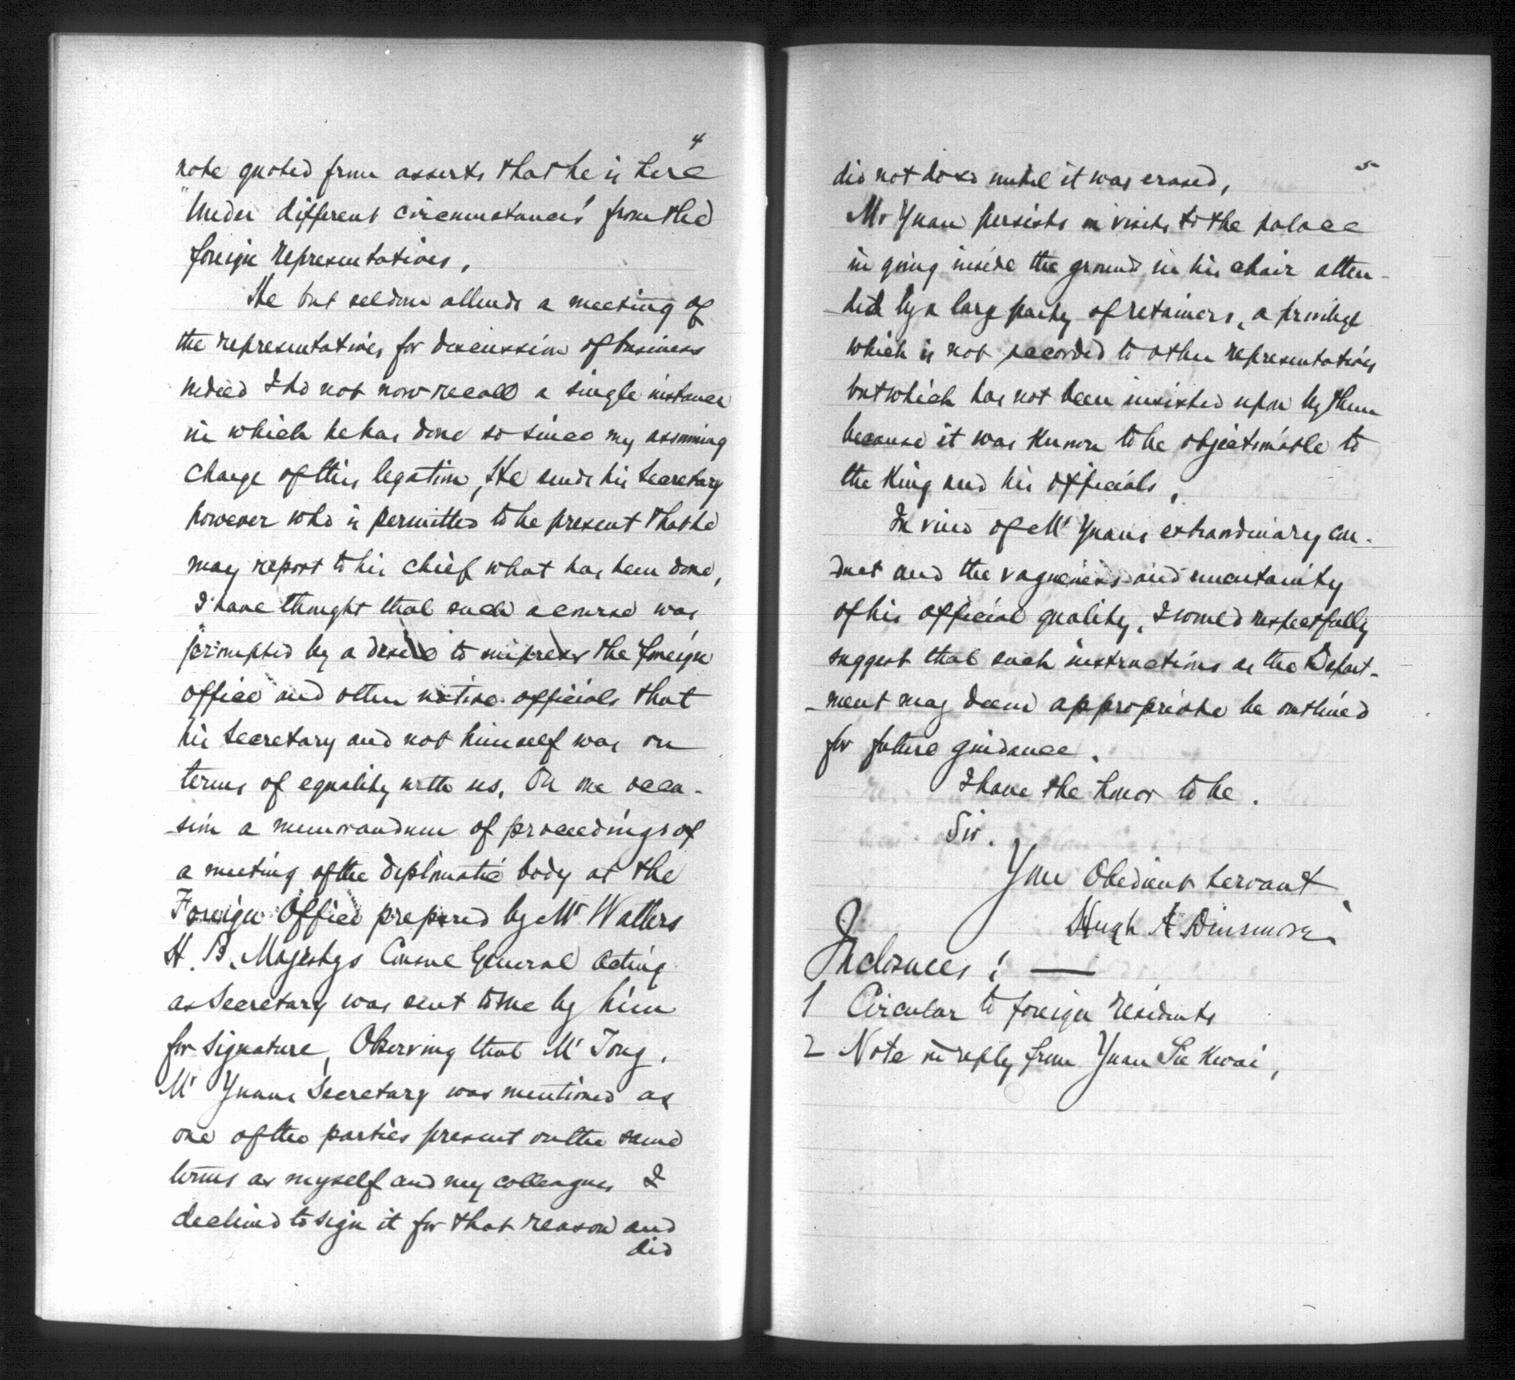 4
note quoted from asserts that he is here
"Under different circumstances" from the
foreign representatives.
He but seldom attends a meeting of
the representatives for discussion of business
indeed I do not now recall a single instance
in which he has done so since my assuming
charge of this legation, He sends his Secretary
however who is permitted to be present that he
may report to his chief what has been done,
I have thought that such a course was
prompted by a desire to impress the foreign
office and other native officials that
his Secretary and not himself was on
terms of equality with us. On one occa-
sion a memorandum of proceedings of
a meeting of the diplomatic body at the
Foreign Office prepared by Mr Watters
H. B. Majestys Consul General acting
as Secretary was sent to me by him
for signature, Observing that Mr Tong,
Mr Yuans Secretary was mentioned as
one of the parties present on the same
terms as myself and my colleagues I
declined to sign it for that reason and
did
5
did not do so until it was erased,
Mr Yuan persists in visits to the palace
in going inside the ground in his chair atten-
ded by a large party of retainers, a privilege
which is not accorded to other representatives
but which has not been insisted upon by them
because it was known to be objectionable to
the King and his officials,
In view of Mr Yuans extraordinary con-
duct and the vagueness and uncertainty
of his official quality, I would respectfully
suggest that such instructions as the Depart-
ment may deem appropriate be outlined
for future guidance.
I have the honor to be.
Sir.
Your Obedient servant
Hugh A Dinsmore
Inclosures: —
1 Circular to foreign residents
2 Note in reply from Yuan Sie Kwai,